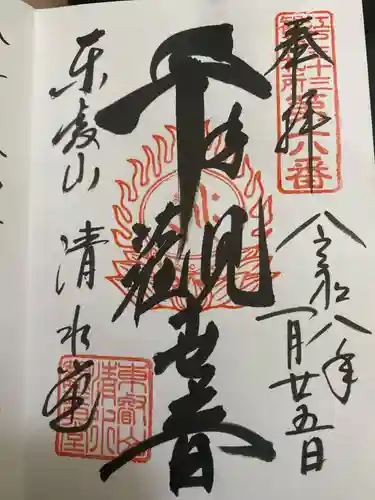 奉拝
江戸三十三
札所
第六番
令和八年
一月廿五日
千手觀世音
東叡山
清水堂
東叡山
清水
堂